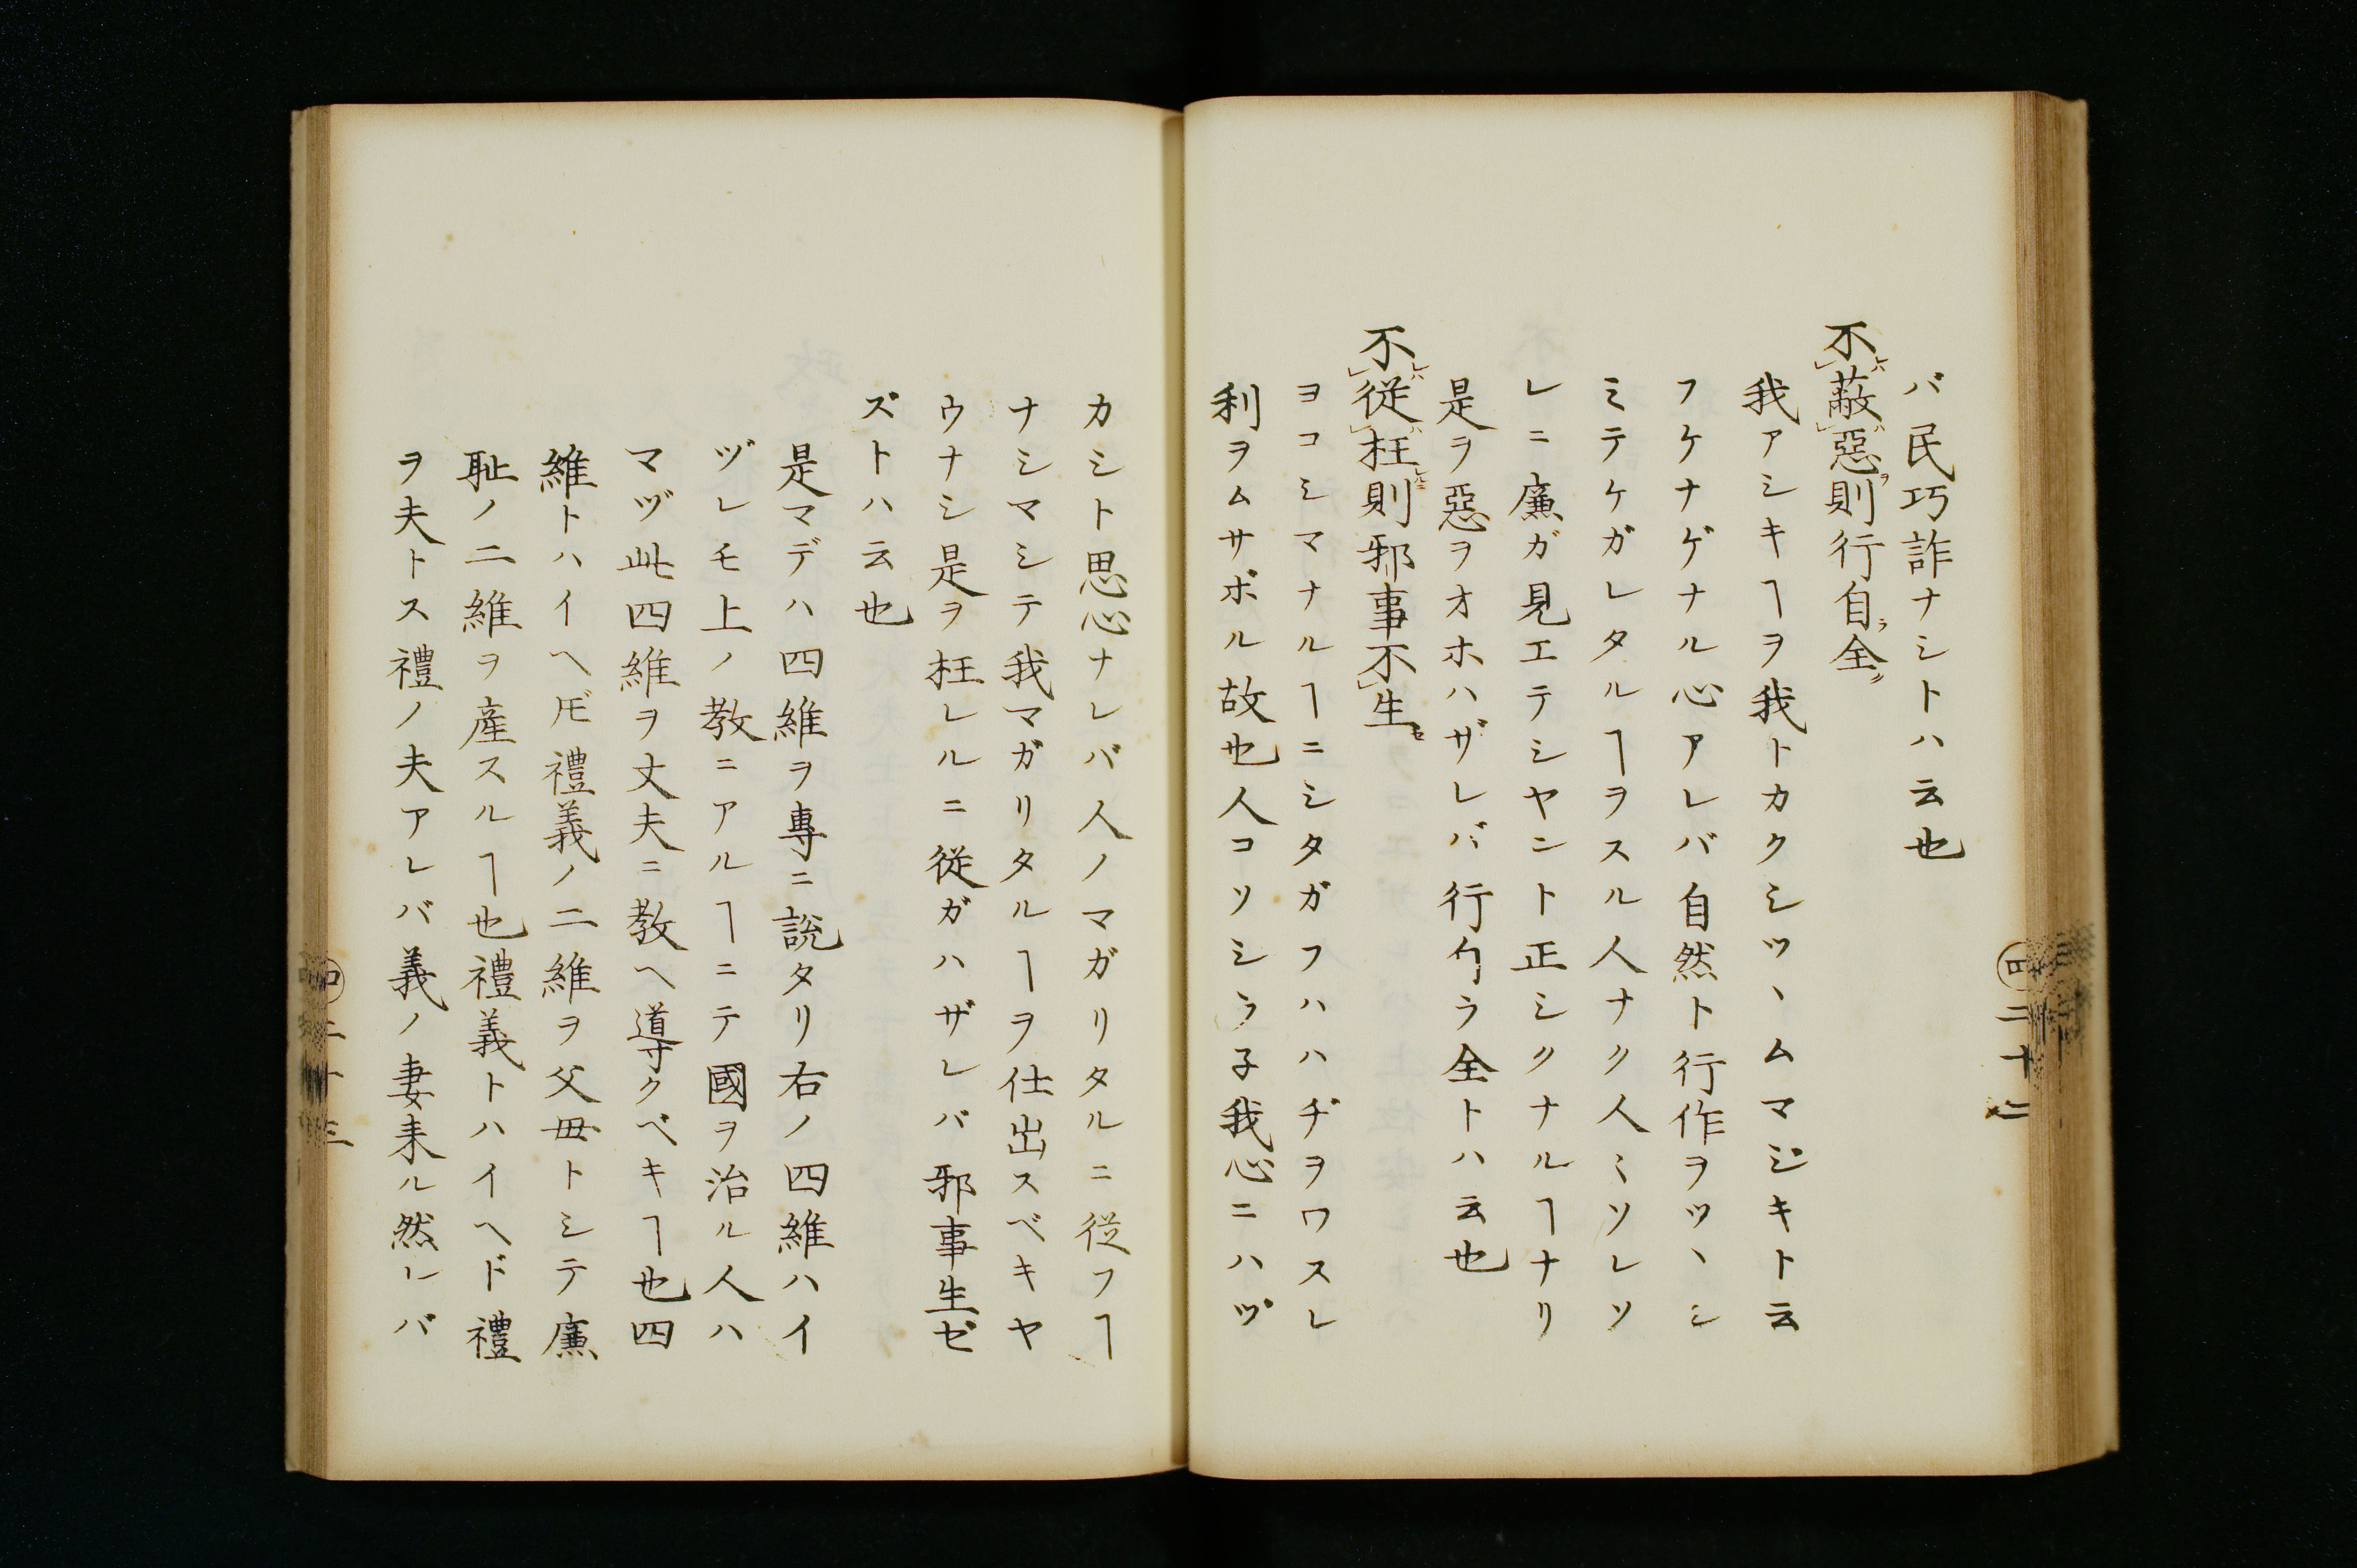 バ民巧詐ナシトハ云也
不レバ蔽ハ惡ヲ則行自ラ全シ
我アシキヿヲ我トカクシツヽムマジキト云
フケナゲナル心アレバ自然ト行作ヲツヽシ
ミテケガレタルヿヲスル人ナク人ミソレソ
レニ廉ガ見エテシヤント正シクナルヿナリ
是ヲ惡ヲオホハザレバ行勹ラ全トハ云也
不レバ從ハ枉ニ則邪事不生セ
ヨコシマナルヿニシタガフハハヂヲワスレ
利ヲムサボル故也人コソシラ子我心ニハヅ
カシト思心ナレバ人ノマガリタルニ從フヿ
ナシマシテ我マガリタルヿヲ仕出スベキヤ
ウナシ是ヲ枉レルニ從ガハザレバ邪事生ゼ
ズトハ云也
是マデハ四維ヲ專ニ說タリ右ノ四維ハイ
ヅレモ上ノ教ニアルヿニテ國ヲ治ル人ハ
マヅ此四維ヲ丈夫ニ教ヘ導クベキヿ也四
維トハイヘ𪜈禮義ノ二維ヲ父母トシテ廉
耻ノ二維ヲ産スルヿ也禮義トハイヘド禮
ヲ夫トス禮ノ夫アレバ義ノ妻来ル然レバ
四 二十二
四 二十三